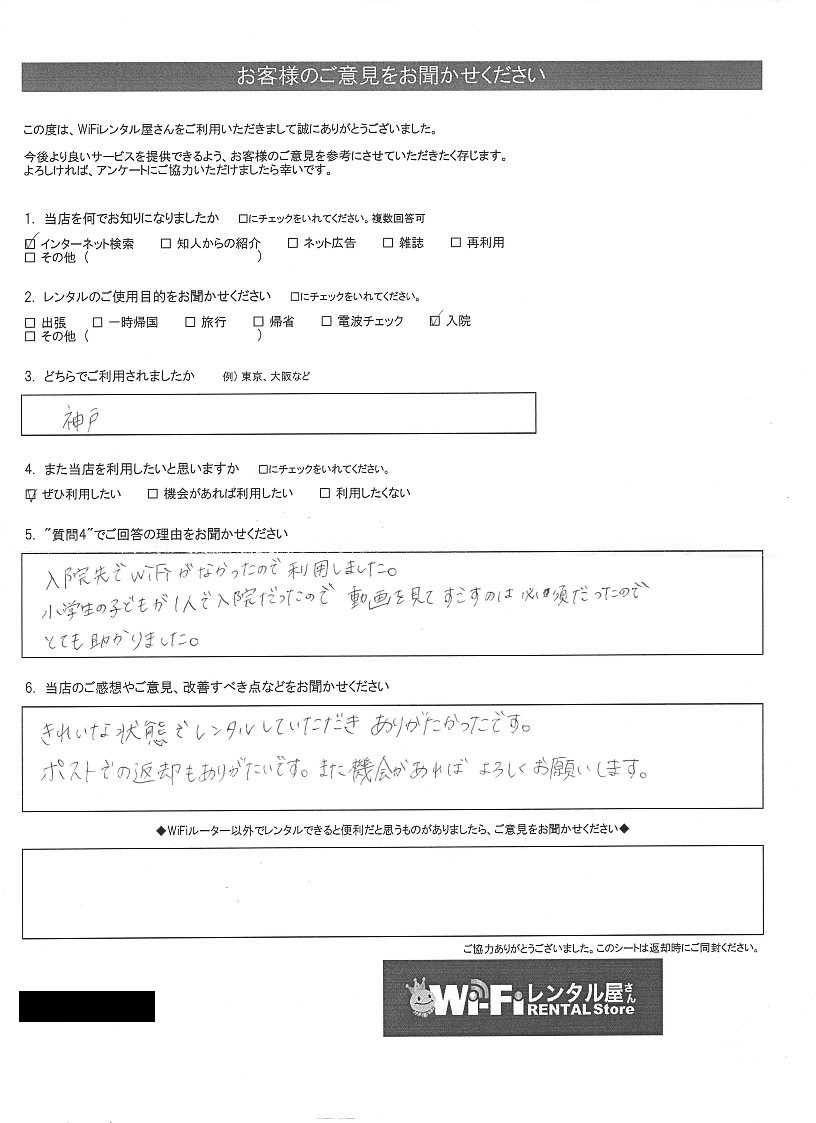 お客様のご意見をお聞かせください
この度は、WiFiレンタル屋さんをご利用いただきまして誠にありがとうございました。
今後より良いサービスを提供できるよう、お客様のご意見を参考にさせていただきたく存じます。
よろしければ、アンケートにご協力いただけましたら幸いです。
1. 当店を何でお知りになりましたか □にチェックをいれてください。複数回答可
☑ インターネット検索 □ 知人からの紹介 □ ネット広告 □ 雑誌 □ 再利用
□ その他 ( )
2. レンタルのご使用目的をお聞かせください □にチェックをいれてください。
□ 出張 □ 一時帰国 □ 旅行 □ 帰省 □ 電波チェック ☑ 入院
□ その他 ( )
3. どちらでご利用されましたか 例) 東京、大阪など
神戸
4. また当店を利用したいと思いますか □にチェックをいれてください。
☑ ぜひ利用したい □ 機会があれば利用したい □ 利用したくない
5. "質問4"でご回答の理由をお聞かせください
入院先でWiFiがなかったので利用しました。
小学生の子どもが1人で入院だったので 動画を見てすごすのは必須だったので
とても助かりました。
6. 当店のご感想やご意見、改善すべき点などをお聞かせください
きれいな状態でレンタルしていただき ありがたかったです。
ポストでの返却もありがたいです。また機会があれば よろしくお願いします。
◆WiFiルーター以外でレンタルできると便利だと思うものがありましたら、ご意見をお聞かせください◆
ご協力ありがとうございました。このシートは返却時にご同封ください。
Wi-Fiレンタル屋さん
RENTAL Store